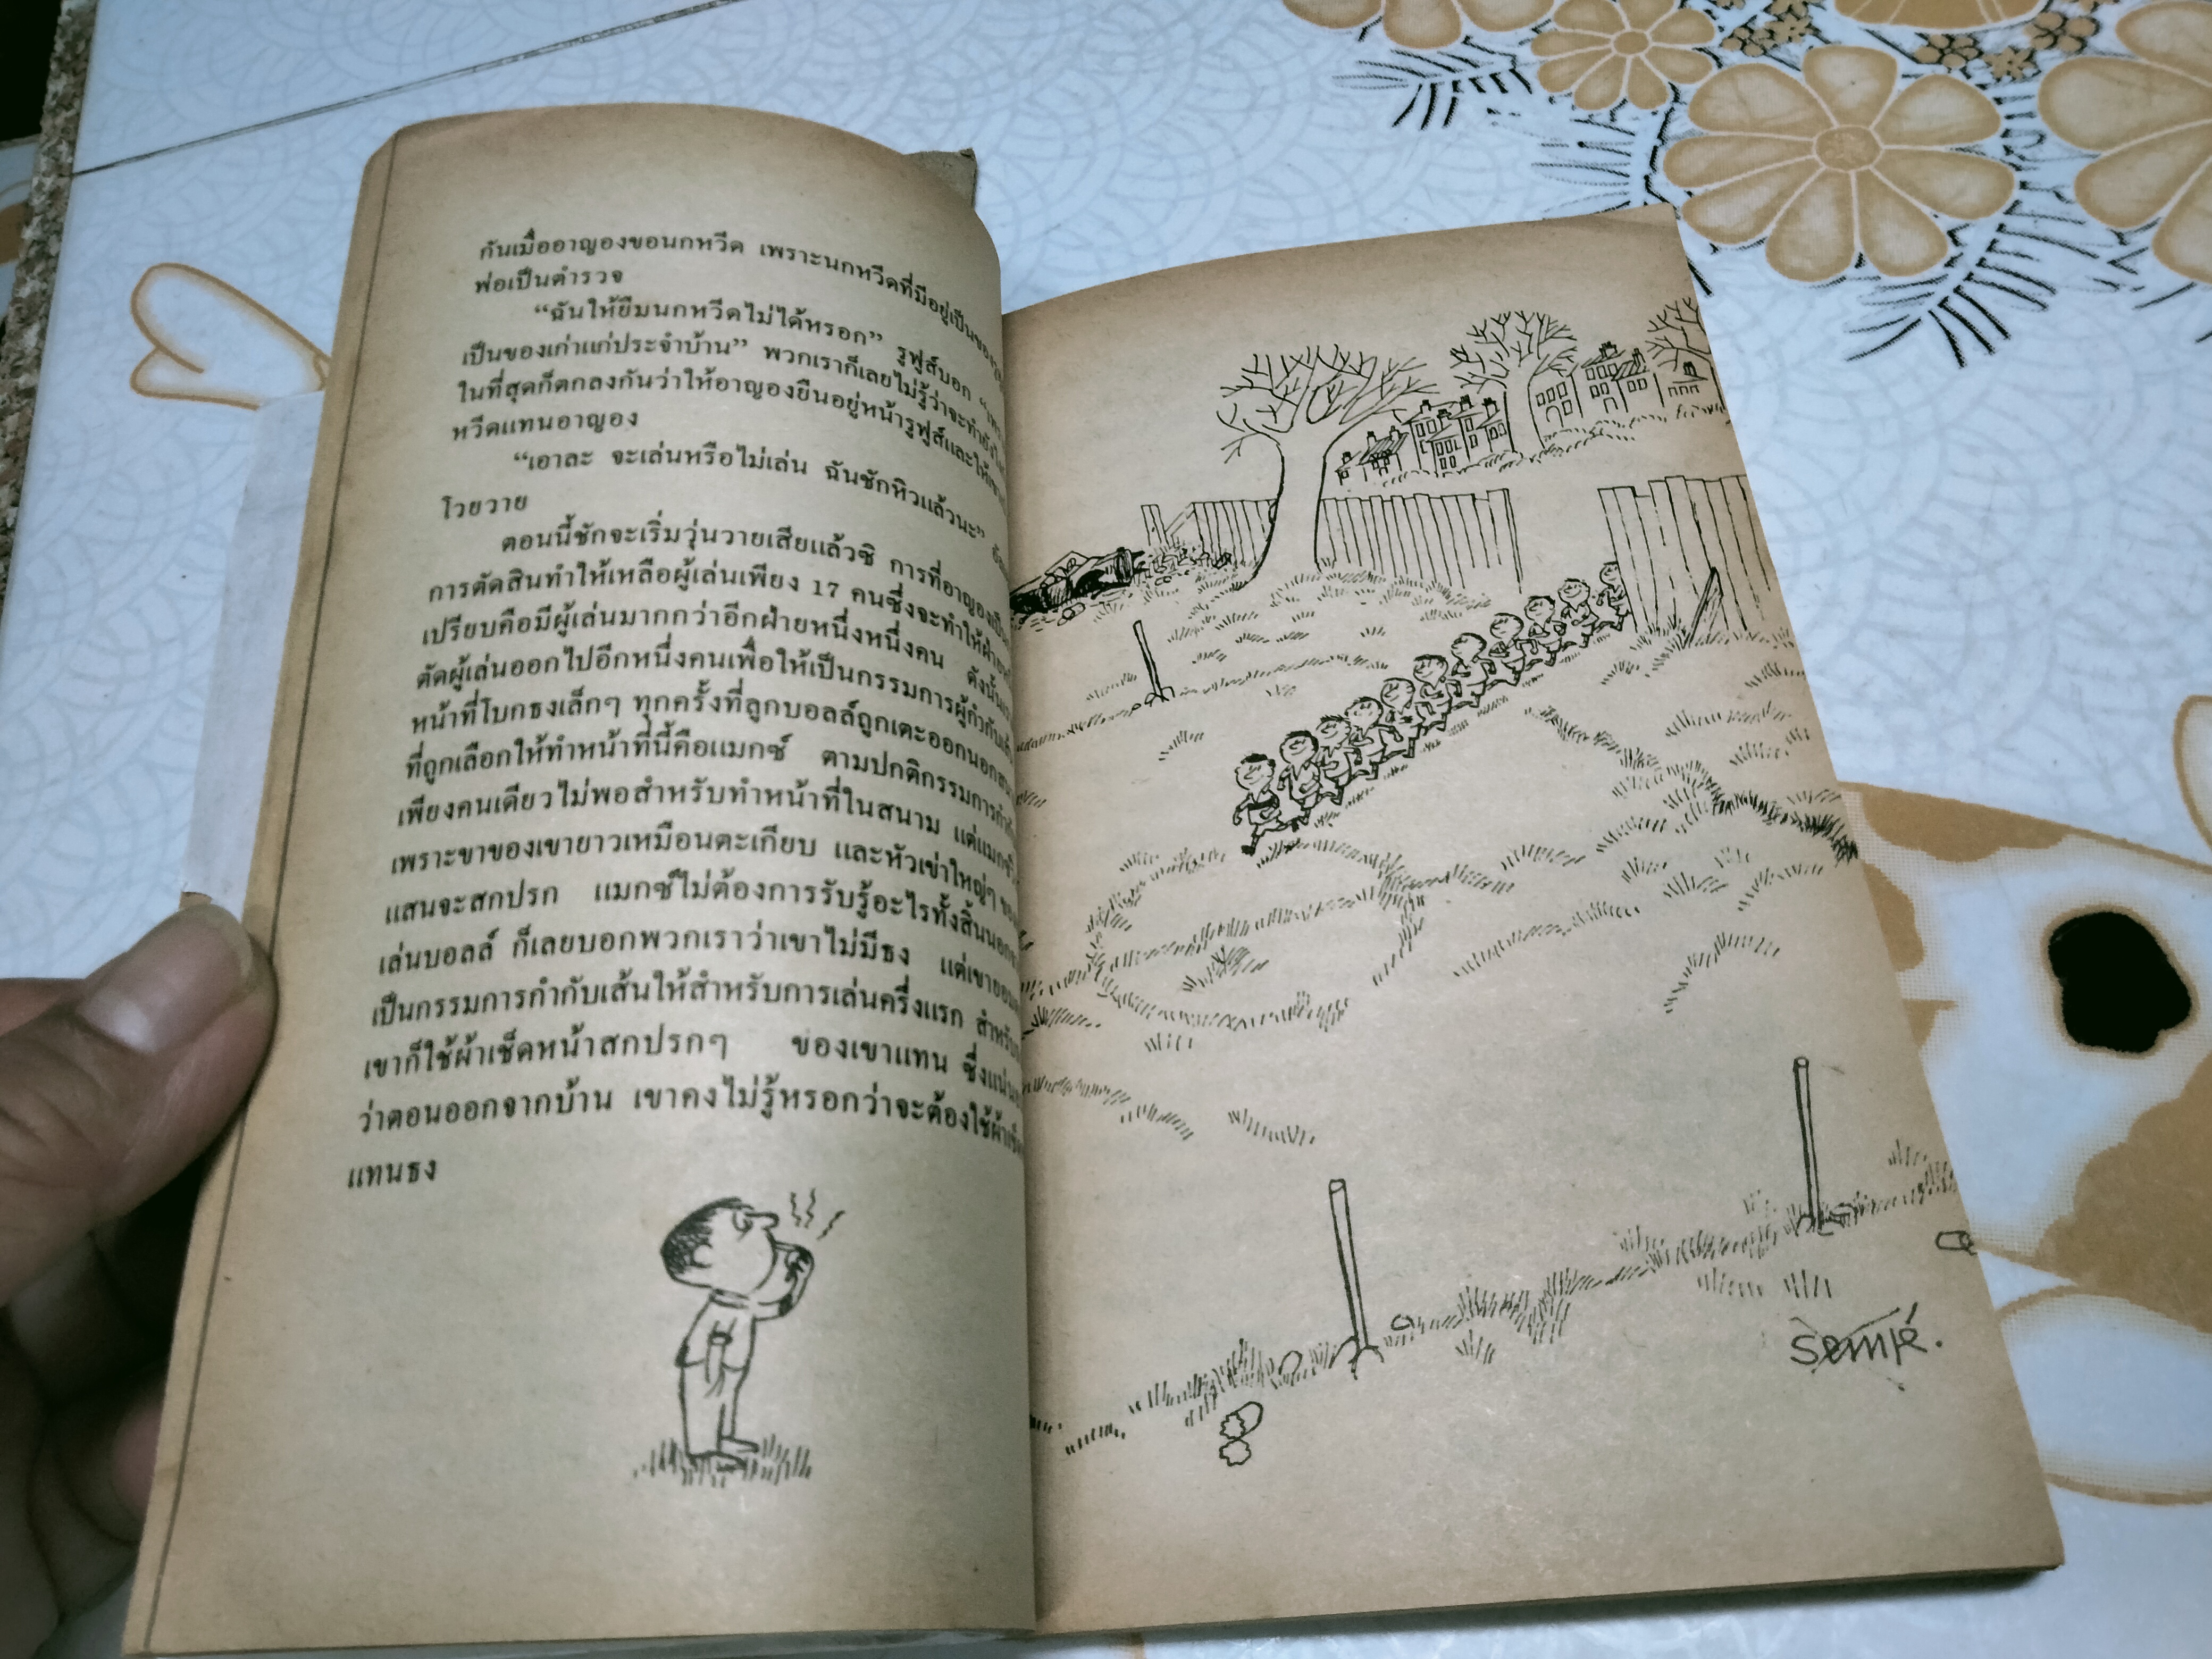 กันเมื่ออาญองขอนกหวีด เพราะนกหวีดที่มีอยู่เป็นของ
พ่อเป็นตำรวจ
“ฉันให้ยืมนกหวีดไม่ได้หรอก” รูฟูส์บอก
เป็นของเก่าแก่ประจำบ้าน” พวกเราก็เลยไม่รู้ว่าจะทำยังไง
ในที่สุดก็ตกลงกันว่าให้อาญองยืนอยู่หน้ารูฟูส์และให้
หวีดแทนอาญอง
“เอาละ จะเล่นหรือไม่เล่น ฉันชักหิวแล้วนะ”
โวยวาย
ตอนนี้ชักจะเริ่มวุ่นวายเสียแล้วซิ การที่อาญองเป็น
การตัดสินทำให้เหลือผู้เล่นเพียง 17 คนซึ่งจะทำให้ฝ่าย
เปรียบคือมีผู้เล่นมากกว่าอีกฝ่ายหนึ่งหนึ่งคน ดังนั้น
ตัดผู้เล่นออกไปอีกหนึ่งคนเพื่อให้เป็นกรรมการผู้กำกับ
หน้าที่โบกธงเล็กๆ ทุกครั้งที่ลูกบอลล์ถูกเตะออกนอก
ที่ถูกเลือกให้ทำหน้าที่นี้คือแมกซ์ ตามปกติกรรมการกำกับ
เพียงคนเดียวไม่พอสำหรับทำหน้าที่ในสนาม แต่แมกซ์
เพราะขาของเขายาวเหมือนตะเกียบ และหัวเข่าใหญ่ๆ
แสนจะสกปรก แมกซ์ไม่ต้องการรับรู้อะไรทั้งสิ้นนอก
เล่นบอลล์ ก็เลยบอกพวกเราว่าเขาไม่มีธง แต่เขายอม
เป็นกรรมการกำกับเส้นให้สำหรับการเล่นครึ่งแรก สำหรับ
เขาก็ใช้ผ้าเช็ดหน้าสกปรกๆ ของเขาแทน ซึ่งแน่
ว่าตอนออกจากบ้าน เขาคงไม่รู้หรอกว่าจะต้องใช้ผ้าเช็ด
แทนธง
Sempé.